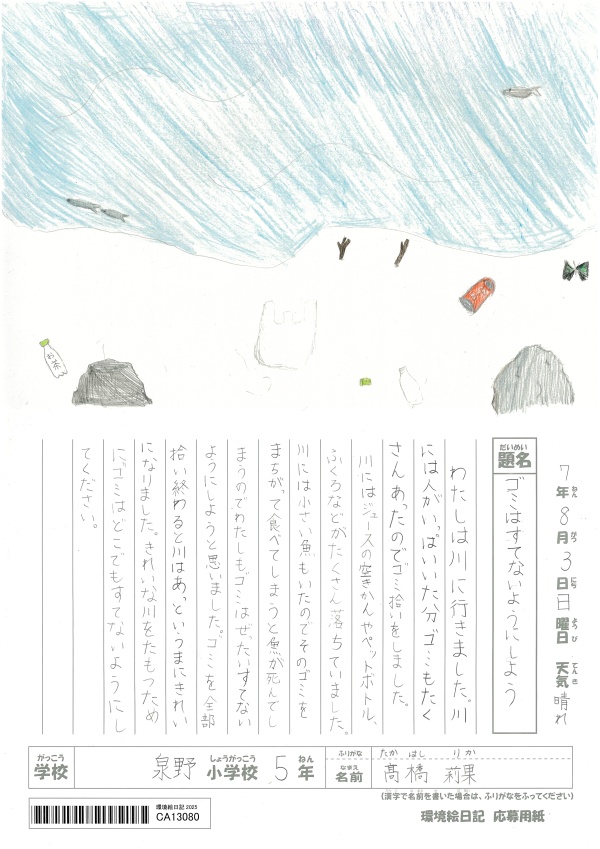 お茶
7年8月3日日曜日 天気 晴れ
ねん がつ にち ようび てんき
だいめい
題名
ゴミはすてないようにしよう
わたしは川に行きました。川
には人がいっぱいいた分ゴミもたく
さんあったのでゴミ拾いをしました。
川にはジュースの空きかんやペットボトル、
ふくろなどがたくさん落ちていました。
川には小さい魚もいたのでそのゴミを
まちがって食べてしまうと魚が死んでし
まうのでわたしもゴミはぜったいすてない
ようにしようと思いました。ゴミを全部
拾い終わると川はあっというまにきれい
になりました。きれいな川をたもつため
にゴミはどこでもすてないようにし
てください。
がっこう しょうがっこう ねん
学校 泉野 小学校 5年
ふりがな たか はし りか
なまえ
名前 髙橋 莉果
(漢字で名前を書いた場合は、ふりがなをふってください)
環境絵日記2025
CA13080
環境絵日記 応募用紙